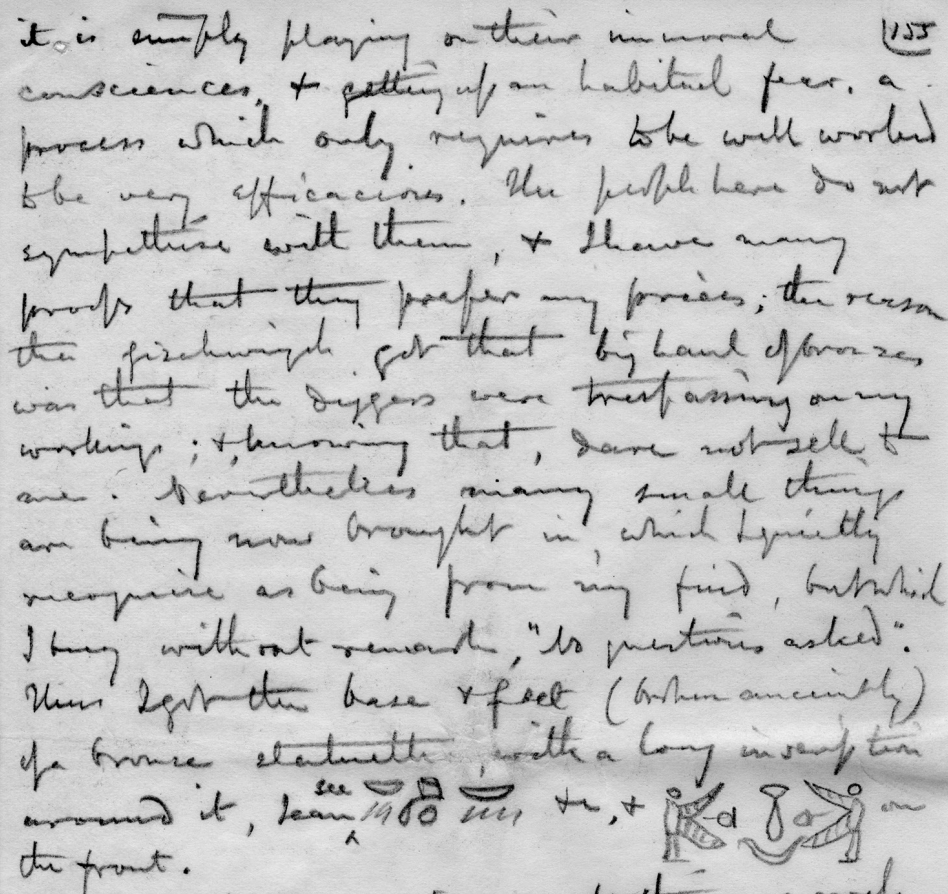 it is simply playing on their immoral 155
consciences, & getting up an habitual fear, a
process which only requires to be well worked
to be very efficacious. The people here do not
sympathise with them, & I have many
proofs that they prefer my prices; the reason
the gizehwigh got that big haul of bronzes
was that the diggers were trespassing on my
workings; &, knowing that, dare not sell to
me. Nevertheless many small things
are being now brought in, which I quietly
recognise as being from my find, but which
I buy without remark, "No questions asked".
Thus I got the base & feet (broken anciently)
of a bronze statuette, with a long inscription
around it, I can see &c, & on
the front.